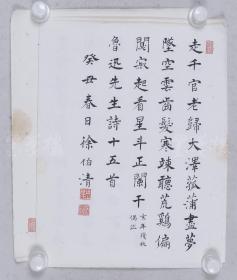 走千官老歸大澤菰蒲盡夢
墜空雲齒髮寒竦聽荒鷄偏
闃寂起看星斗正闌干 亥年殘秋偶作
魯迅先生詩十五首
癸丑春日徐伯清